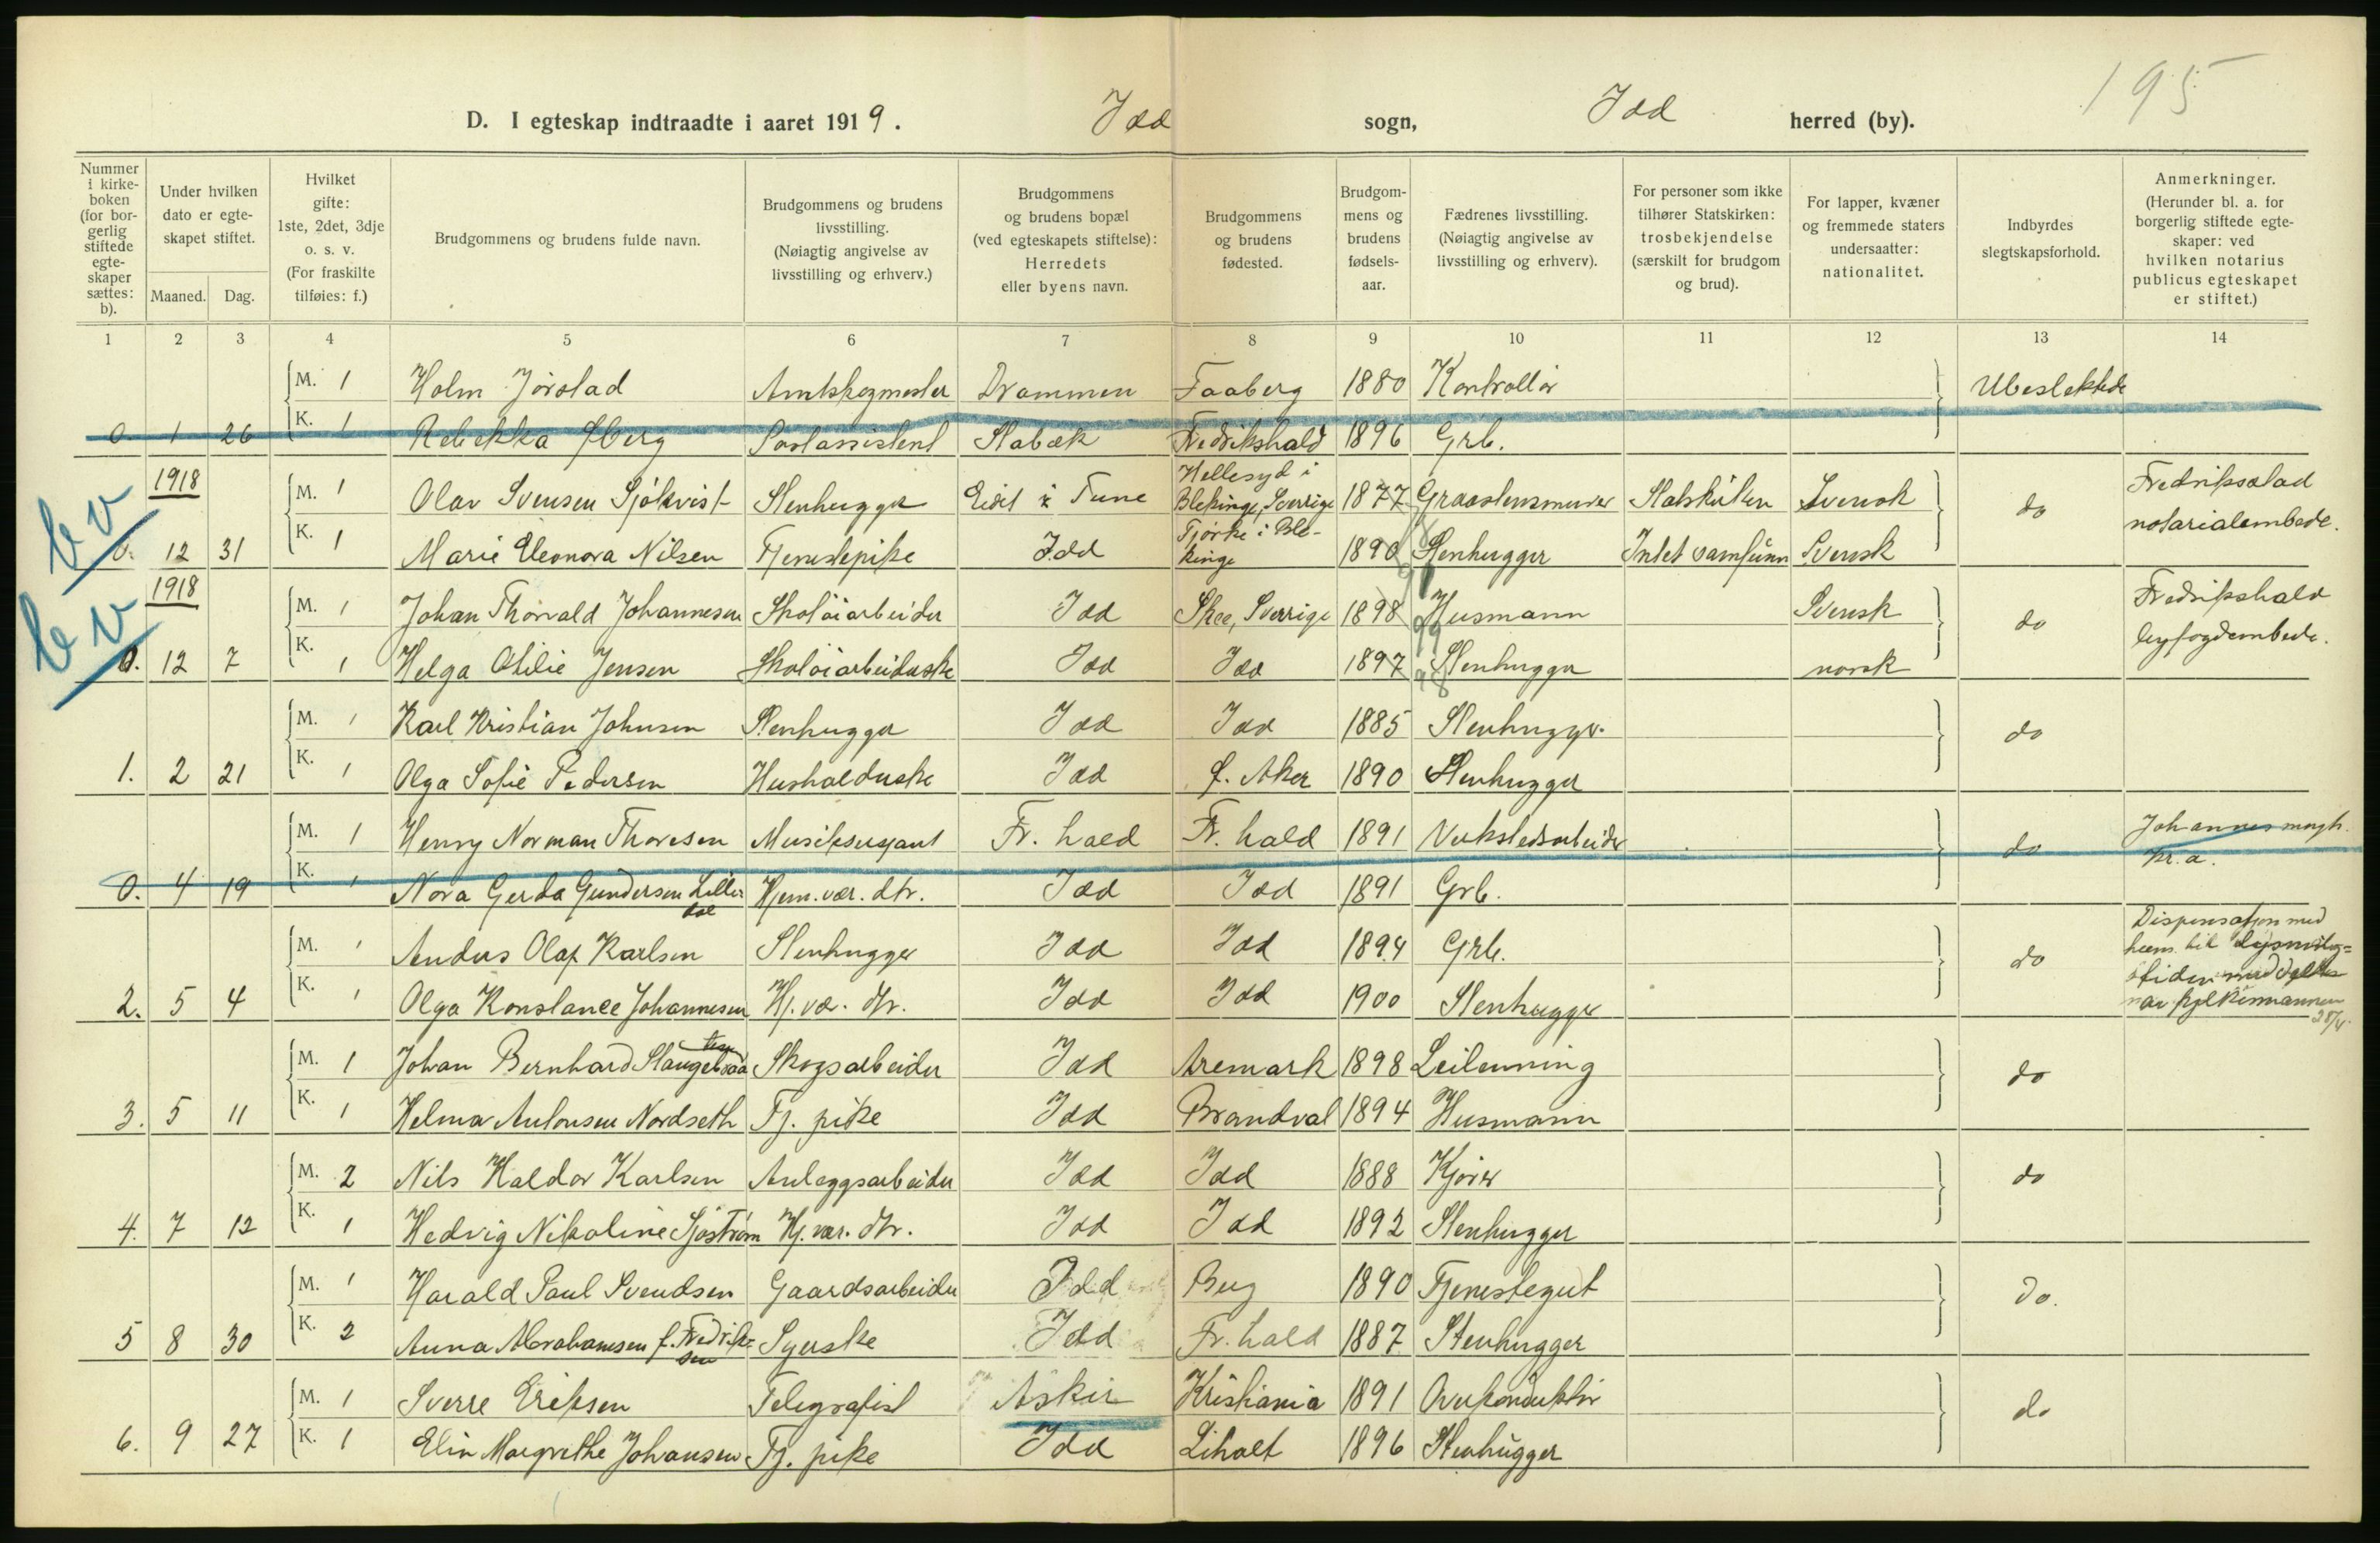 195
D. I egteskap indtraadte i aaret 1919. Idd sogn, Idd herred (by).
Nummer i kirkeboken (for borgerlig stiftede egteskaper sættes: b).
Under hvilken dato er egteskapet stiftet.
Maaned. Dag.
Hvilket gifte: 1ste, 2det, 3dje o. s. v. (For fraskilte tilføies: f.)
Brudgommens og brudens fulde navn.
Brudgommens og brudens livsstilling. (Nøiagtig angivelse av livsstilling og erhverv.)
Brudgommens og brudens bopæl (ved egteskapets stiftelse): Herredets eller byens navn.
Brudgommens og brudens fødested.
Brudgommens og brudens fødselsaar.
Fædrenes livsstilling. (Nøiagtig angivelse av livsstilling og erhverv).
For personer som ikke tilhører Statskirken: trosbekjendelse (særskilt for brudgom og brud).
For lapper, kvæner og fremmede staters undersaatter: nationalitet.
Indbyrdes slegtskapsforhold.
Anmerkninger. (Herunder bl. a. for borgerlig stiftede egteskaper: ved hvilken notarius publicus egteskapet er stiftet.)
1 2 3 4 5 6 7 8 9 10 11 12 13 14
M. 1 Holm Jørstad Amtskogmester Drammen Faaberg 1880 Kontrollør Ubeslektede
0. 1 26 K. 1 Rebekka Øberg Postassistent Stabæk Fredrikshald 1896 Grb.
bv 1918 M. 1 Olav Svensen Sjökvist Stenhugger Eidet i Tune Hellesyd i Blekinge, Sverrige 1877 Graastensmurer Statskirken Svensk do Fredriksstad notarialembede.
0. 12 31 K. 1 Marie Eleonora Nilsen Tjenestepike Idd Tjørke i Blekinge 1890 Stenhugger Intet samfunn Svensk
bv 1918 M. 1 Johan Thorvald Johannesen Skotøiarbeider Idd Skee, Sverrige 1898 Husmann Svensk do Fredrikshald byfogdembede.
0. 12 7 K. 1 Helga Otilie Jensen Skotøiarbeiderske Idd Idd 1897 Stenhugger norsk
M. 1 Karl Kristian Johnsen Stenhugger Idd Idd 1885 Stenhugger. do
1. 2 21 K. 1 Olga Sofie Pedersen Husholderske Idd Ø. Aker 1890 Stenhugger
M. 1 Henry Norman Thoresen Musiksersjant Fr. hald Fr. hald 1891 Verkstedsarbeider do Johannes mngh. Kr.a.
0. 4 19 K. 1 Nora Gerda Gundersen Lilledal Hjem. vær. dtr. Idd Idd 1891 Grb.
M. 1 Anders Olaf Karlsen Stenhugger Idd Idd 1894 Grb. do Dispensasjon med hens. til
2. 5 4 K. 1 Olga Konstance Johannesen Hj. vær. dtr. Idd Idd 1900 Stenhugger av fylkesmannen 28/4.
M. 1 Johan Bernhard Skogsarbeider Idd Aremark 1898 Leilending do
3. 5 11 K. 1 Helma Antonsen Nordseth Tj. pike Idd Brandval 1894 Husmann
M. 2 Nils Haldor Karlsen Anlæggsarbeider Idd Idd 1888 Kjører do
4. 7 12 K. 1 Hedvig Nikoline Sjöström Hj. vær. dtr. Idd Idd 1892 Stenhugger
M. 1 Harald Paul Svendsen Gaardsarbeider Idd Berg 1890 Tjenestegut do.
5 8 30 K. 2 Anna Abrahamsen f. Fredriksen Syerske Idd Fr. hald 1887 Stenhugger
M. 1 Sverre Eriksen Telegrafist Asker Kristiania 1891 Overkonduktør do
6. 9 27 K. 1 Elin Margrethe Johansen Tj. pike Idd Lihalt 1896 Stenhugger